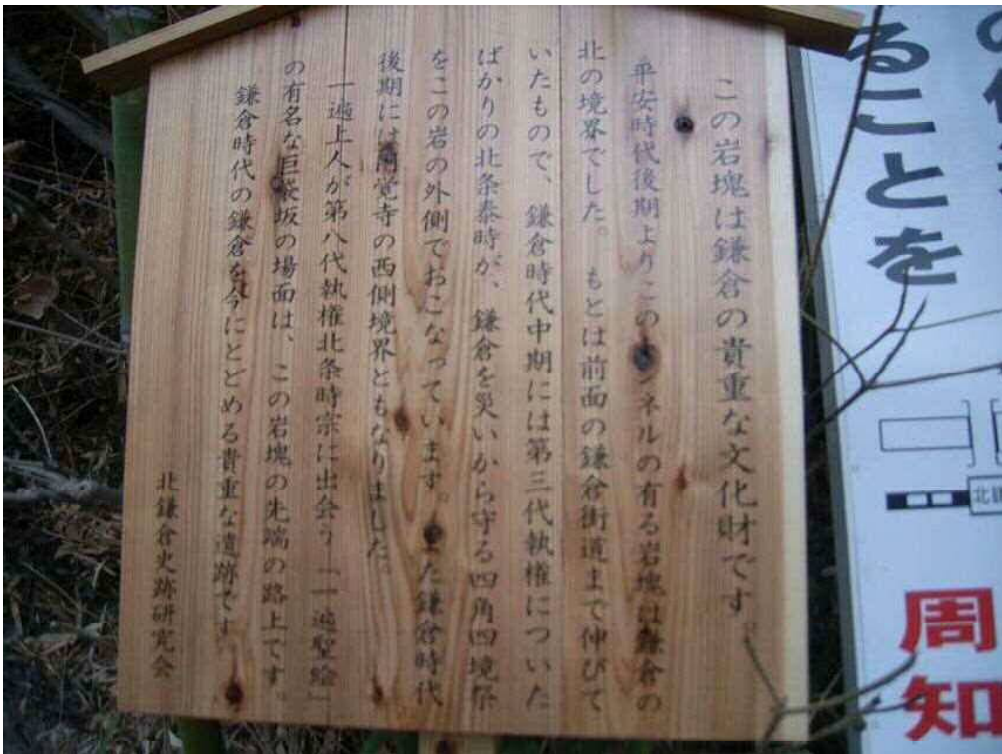 この岩塊は鎌倉の貴重な文化財です。
平安時代後期よりこのンネルの有る岩塊は鎌倉の
北の境界でした。 もとは前面の鎌倉街道まで伸びて
いたもので、鎌倉時代中期には第三代執権についた
ばかりの北条泰時が、鎌倉を災いから守る四角四境祭
をこの岩の外側でおこなっています。また鎌倉時代
後期には円覚寺の西側境界ともなりました。
一遍上人が第八代執権北条時宗に出会う「一遍聖絵」
の有名な巨袋坂の場面は、この岩塊の先端の路上です。
鎌倉時代の鎌倉を今にとどめる貴重な遺跡です
北鎌倉史跡研究会
ることを
周知